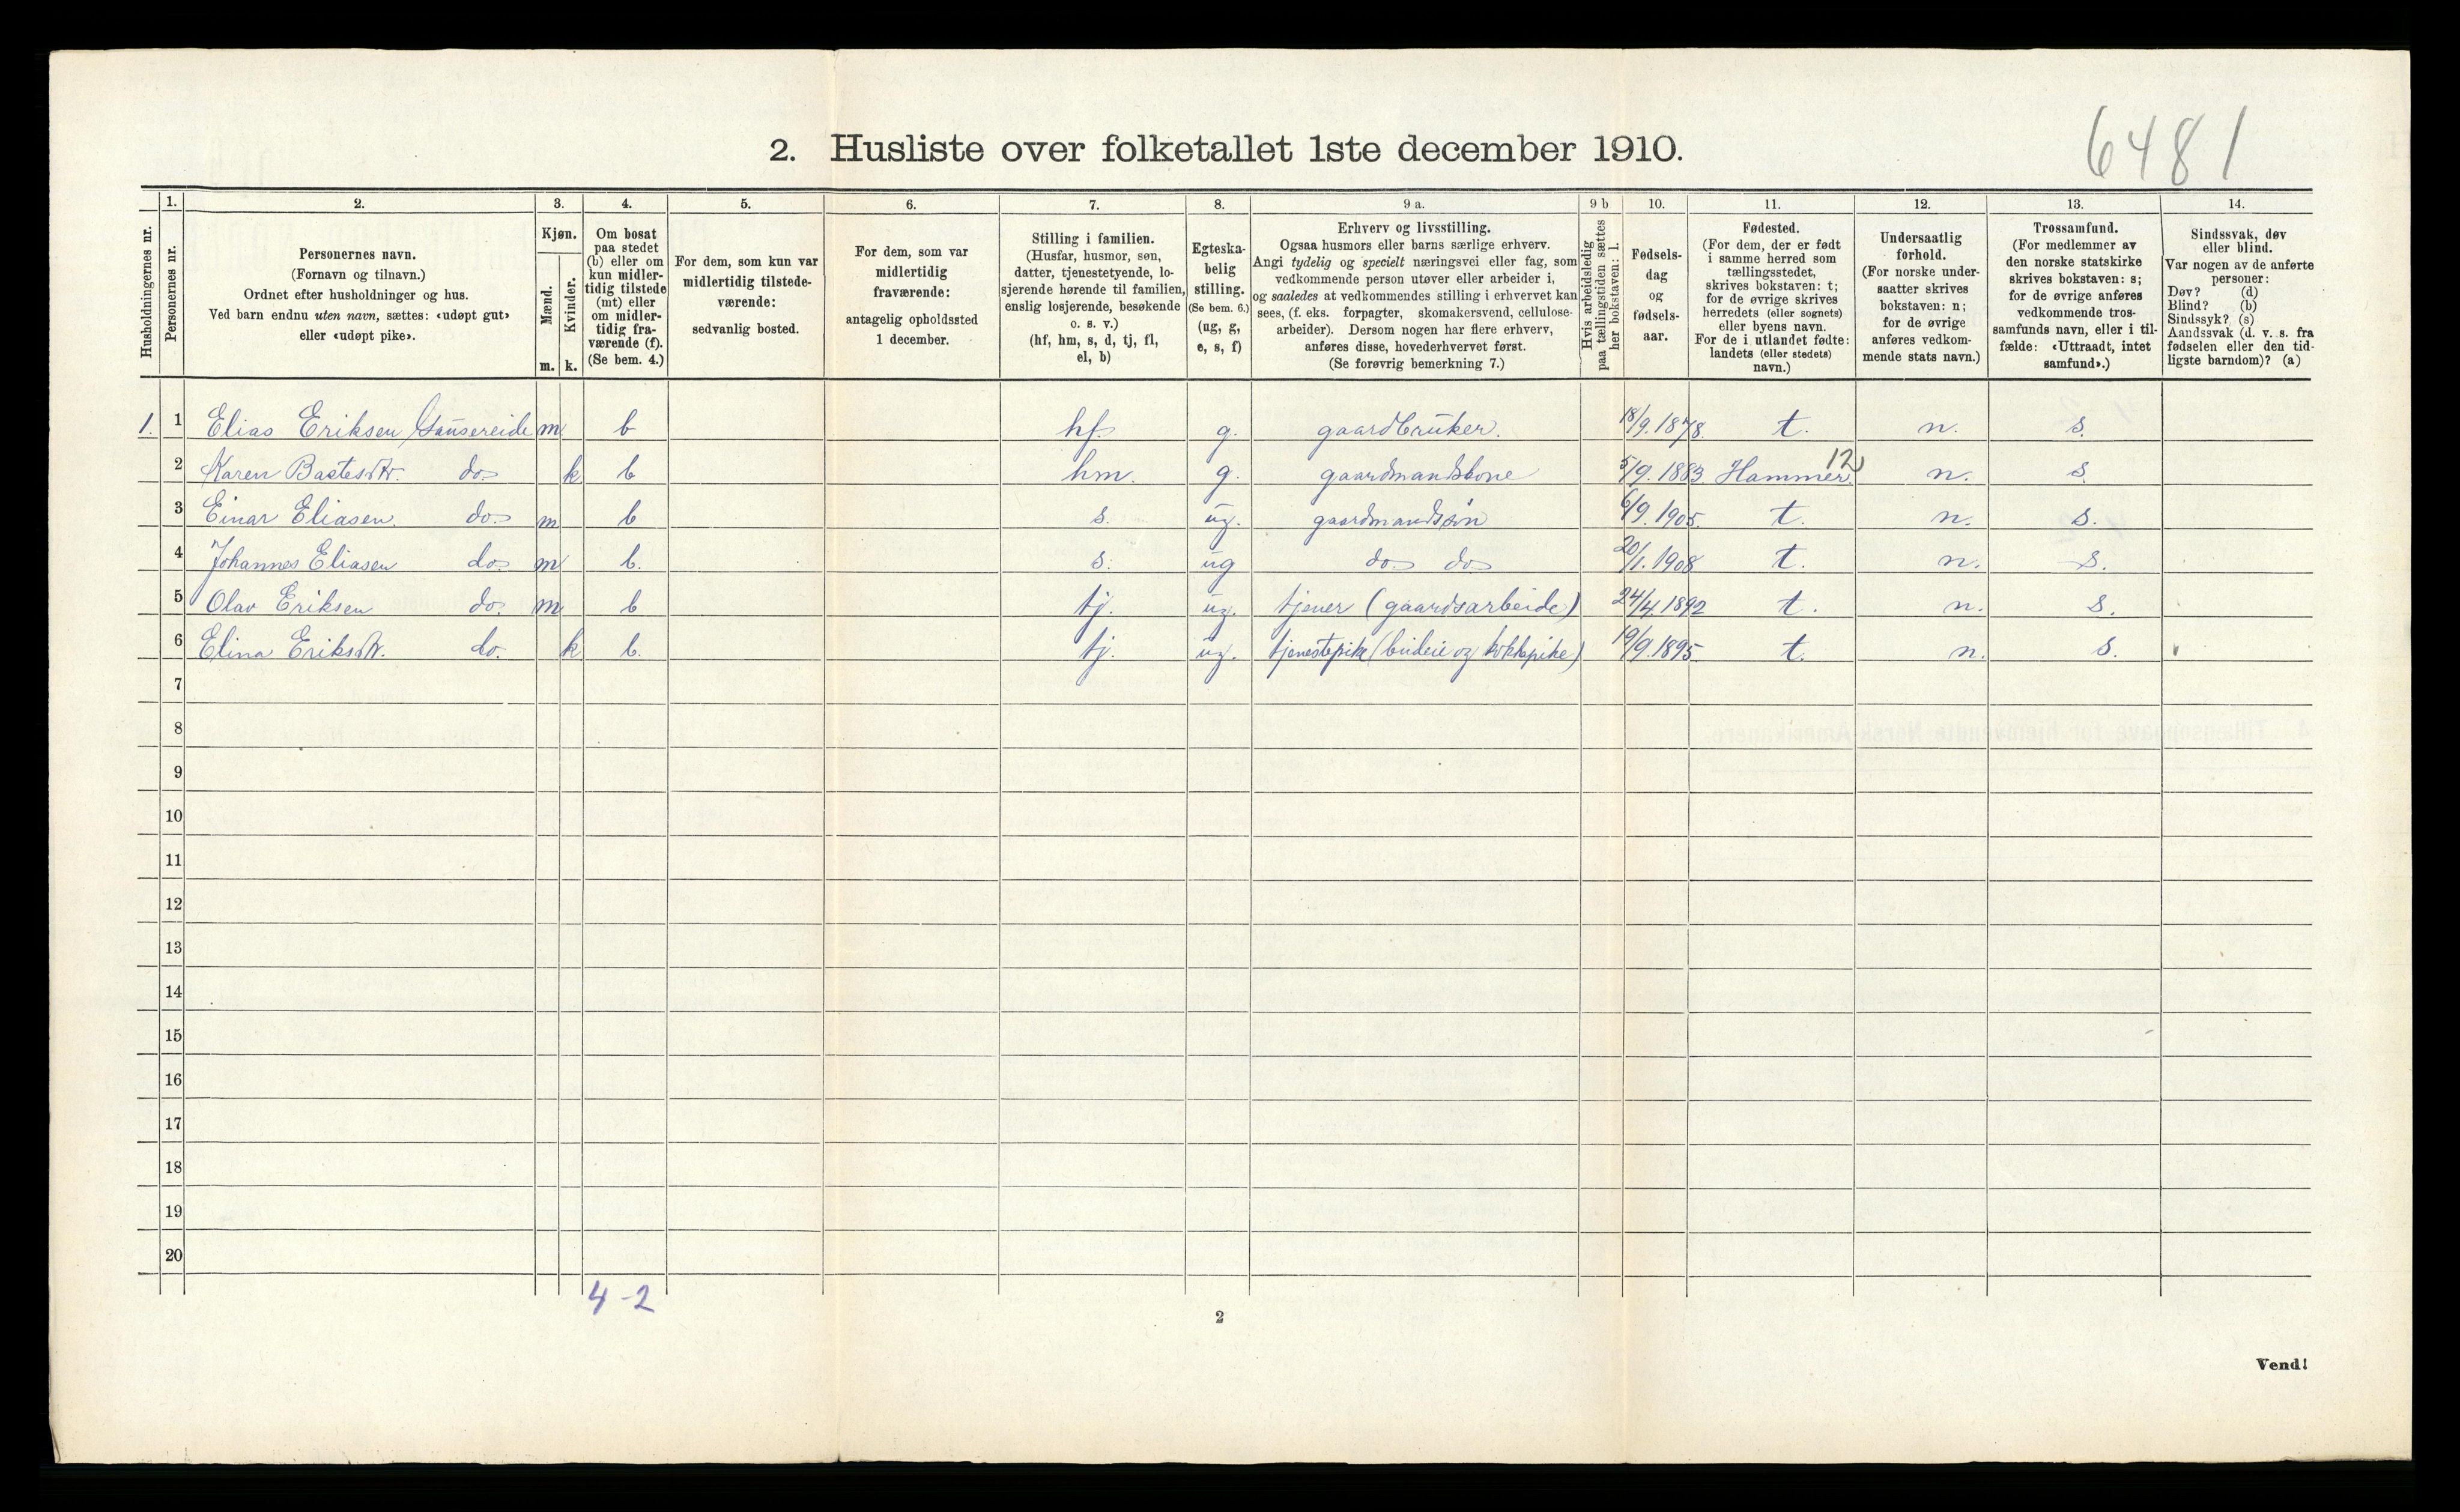 6481
2. Husliste over folketallet 1ste december 1910.
1. 2. 3. 4. 5. 6. 7. 8. 9 a. 9 b 10. 11. 12. 13. 14.
Husholdningernes nr.
Personernes nr.
Personernes navn.
(Fornavn og tilnavn.)
Ordnet efter husholdninger og hus.
Ved barn endnu uten navn, sættes: «udøpt gut»
eller «udøpt pike».
Kjøn.
Mænd.
Kvinder.
m. k.
Om bosat
paa stedet
(b) eller om
kun midler-
tidig tilstede
(mt) eller
om midler-
tidig fra-
værende (f).
(Se bem. 4.)
For dem, som kun var
midlertidig tilstede-
værende:
sedvanlig bosted.
For dem, som var
midlertidig
fraværende:
antagelig opholdssted
1 december.
Stilling i familien.
(Husfar, husmor, søn,
datter, tjenestetyende, lo-
sjerende hørende til familien,
enslig losjerende, besøkende
o. s. v.)
(hf, hm, s, d, tj, fl,
el, b)
Egteska-
belig
stilling.
(Se bem. 6.)
(ug, g,
e, s, f)
Erhverv og livsstilling.
Ogsaa husmors eller barns særlige erhverv.
Angi tydelig og specielt næringsvei eller fag, som
vedkommende person utøver eller arbeider i,
og saaledes at vedkommendes stilling i erhvervet kan
sees, (f. eks. forpagter, skomakersvend, cellulose-
arbeider). Dersom nogen har flere erhverv,
anføres disse, hovederhvervet først.
(Se forøvrig bemerkning 7.)
Hvis arbeidsledig
paa tællingstiden sættes
her bokstaven: l.
Fødsels-
dag
og
fødsels-
aar.
Fødested.
(For dem, der er født
i samme herred som
tællingsstedet,
skrives bokstaven: t;
for de øvrige skrives
herredets (eller sognets)
eller byens navn.
For de i utlandet fødte:
landets (eller stedets)
navn.)
Undersaatlig
forhold.
(For norske under-
saatter skrives
bokstaven: n;
for de øvrige
anføres vedkom-
mende stats navn.)
Trossamfund.
(For medlemmer av
den norske statskirke
skrives bokstaven: s;
for de øvrige anføres
vedkommende tros-
samfunds navn, eller i til-
fælde: «Uttraadt, intet
samfund».)
Sindssvak, døv
eller blind.
Var nogen av de anførte
personer:
Døv? (d)
Blind? (b)
Sindssyk? (s)
Aandssvak (d. v. s. fra
fødselen eller den tid-
ligste barndom)? (a)
1. 1 Elias Eriksen Gausereide m b hf. g. gaardbruker. 18/9.1878. t. n. s.
2 Karen Bastesdtr. do k b hm. g. gaardmandskone 5/9.1883. Hammer. 12 n. s.
3 Einar Eliasen. do. m b s. ug. gaardmandssøn 6/9.1905. t. n. s.
4 Johannes Eliasen do m b. s. ug do do 20/1.1908 t. n. s.
5 Olav Eriksen do. m b tj. ug. tjener (gaardsarbeide) 24/4.1892 t. n. s.
6 Elina Eriksdtr. do. k b. tj. ug. tjenestepike (budeie og kokkepike) 19/9.1895. t. n. s.
7
8
9
10
11
12
13
14
15
16
17
18
19
20
4-2
2
Vend!